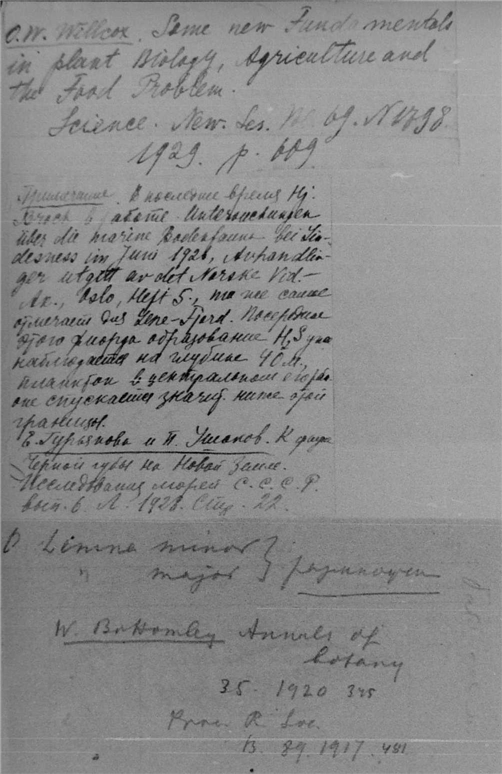 O.W. Willcox. Some new Fundamentals
in plant Biology, Agriculture and
the Food Problem.
Science. New. Ser. Vol. 69. N 1798
1929. p. 609
Примечание. В последнее время Hj.
Broch в работе Untersuchungen
über die marine Bodenfauna bei Lin-
desness im Juni 1926, Avhandlin-
ger utgitt av det Norske Vid.-
Ak., Oslo, Heft 5., то же самое
отмечает для Lene-Fjord. Посередине
этого фиорда образование H₂S уже
наблюдается на глубине 40 м.,
планктон в центральном его районе
опускается значит ниже этой
границы.
Е. Гурьянова и П. Ушаков. К фауне
Черной губы на Новой Земле.
Исследования морей С.С.С.Р.
вып. 6 Л. 1928. Стр. 22.
Lemna minor }
" major }
W. Bottomley Annals of
botany
35. 1920 345
Proc. R. Soc.
B. 89. 1917. 481